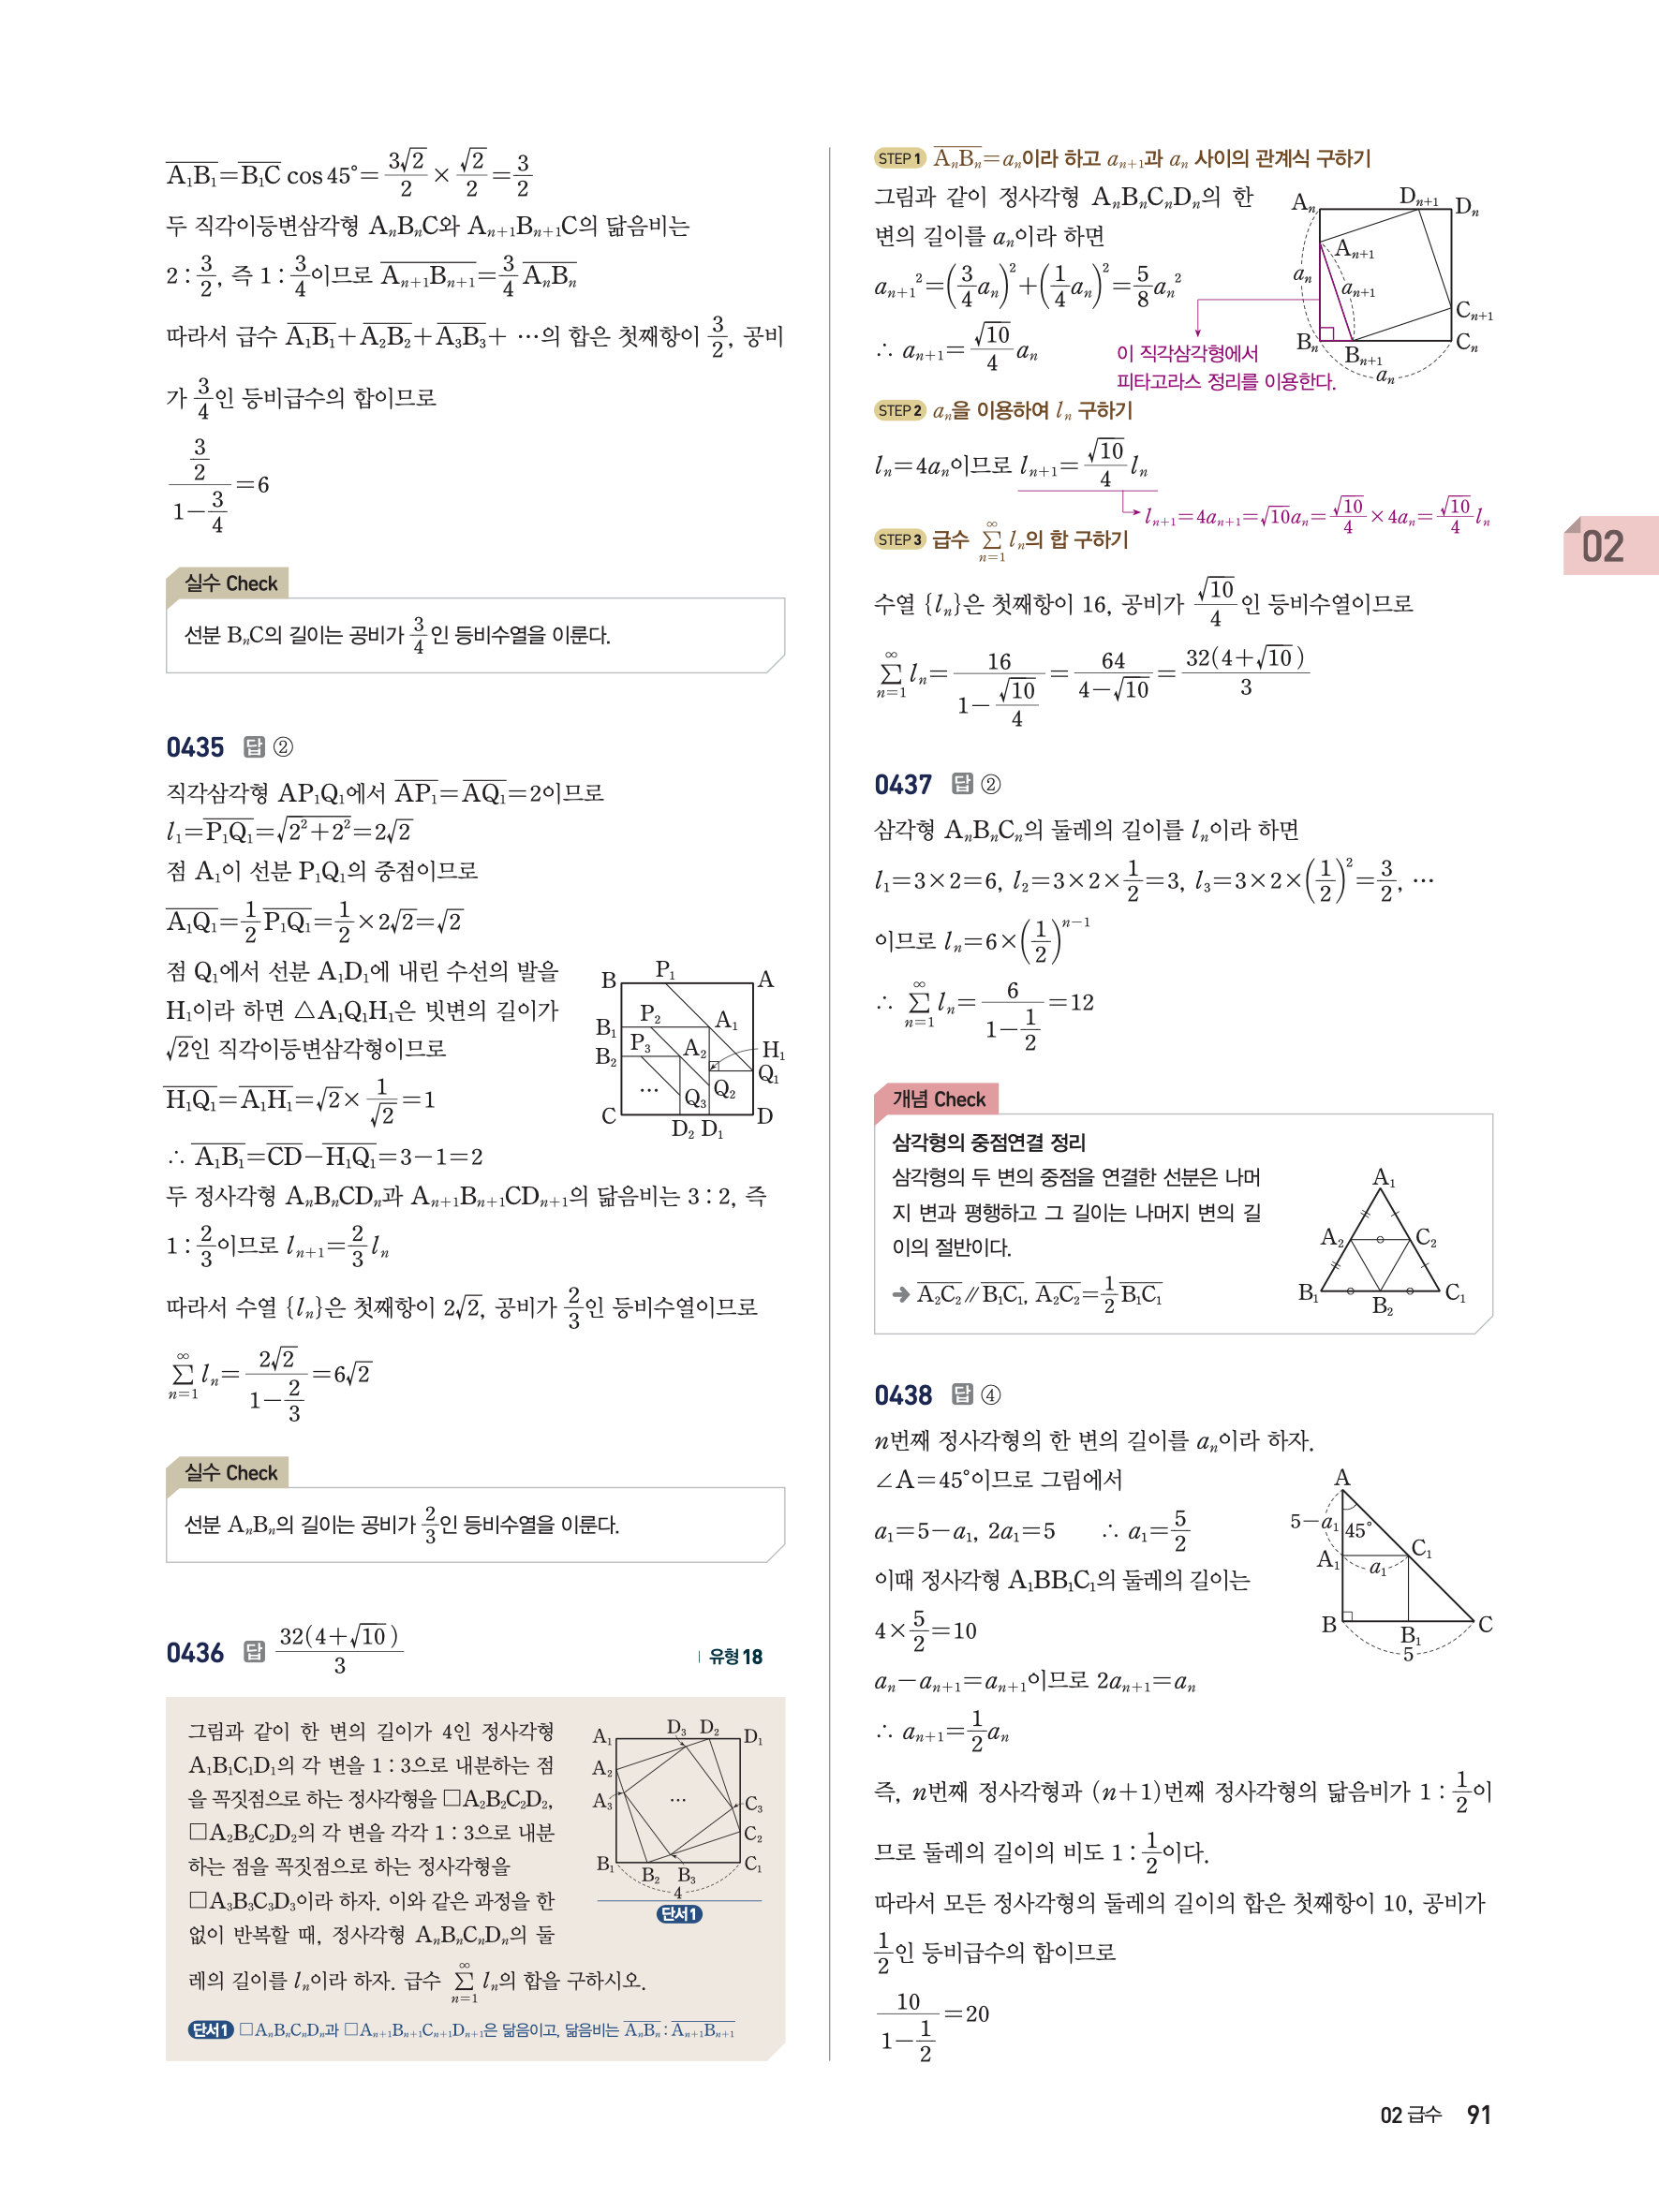 A₁B₁=B₁C cos 45°=3√2/2×√2/2=3/2
두 직각이등변삼각형 AₙBₙC와 Aₙ₊₁Bₙ₊₁C의 닮음비는
2 : 3/2, 즉 1 : 3/4이므로 Aₙ₊₁Bₙ₊₁=3/4 AₙBₙ
따라서 급수 A₁B₁+A₂B₂+A₃B₃+ …의 합은 첫째항이 3/2, 공비
가 3/4인 등비급수의 합이므로
(3/2)/(1-3/4)=6
실수 Check
선분 BₙC의 길이는 공비가 3/4인 등비수열을 이룬다.
0435 답 ②
직각삼각형 AP₁Q₁에서 AP₁=AQ₁=2이므로
l₁=P₁Q₁=√(2²+2²)=2√2
점 A₁이 선분 P₁Q₁의 중점이므로
A₁Q₁=1/2 P₁Q₁=1/2×2√2=√2
점 Q₁에서 선분 A₁D₁에 내린 수선의 발을
H₁이라 하면 △A₁Q₁H₁은 빗변의 길이가
√2인 직각이등변삼각형이므로
H₁Q₁=A₁H₁=√2×1/√2=1
∴ A₁B₁=CD-H₁Q₁=3-1=2
B P₁ A
B₁ P₂ A₁
B₂ P₃ A₂ H₁
Q₁
… Q₃ Q₂
C D₂ D₁ D
두 정사각형 AₙBₙCDₙ과 Aₙ₊₁Bₙ₊₁CDₙ₊₁의 닮음비는 3 : 2, 즉
1 : 2/3이므로 lₙ₊₁=2/3 lₙ
따라서 수열 {lₙ}은 첫째항이 2√2, 공비가 2/3인 등비수열이므로
∑(n=1→∞) lₙ=2√2/(1-2/3)=6√2
실수 Check
선분 AₙBₙ의 길이는 공비가 2/3인 등비수열을 이룬다.
0436 답 32(4+√10)/3
유형 18
그림과 같이 한 변의 길이가 4인 정사각형
A₁B₁C₁D₁의 각 변을 1 : 3으로 내분하는 점
을 꼭짓점으로 하는 정사각형을 □A₂B₂C₂D₂,
□A₂B₂C₂D₂의 각 변을 각각 1 : 3으로 내분
하는 점을 꼭짓점으로 하는 정사각형을
□A₃B₃C₃D₃이라 하자. 이와 같은 과정을 한
없이 반복할 때, 정사각형 AₙBₙCₙDₙ의 둘
레의 길이를 lₙ이라 하자. 급수 ∑(n=1→∞) lₙ의 합을 구하시오.
A₁ D₃ D₂ D₁
A₂
A₃ … C₃
C₂
B₁ B₂ B₃ C₁
4
단서1
단서1 □AₙBₙCₙDₙ과 □Aₙ₊₁Bₙ₊₁Cₙ₊₁Dₙ₊₁은 닮음이고, 닮음비는 AₙBₙ : Aₙ₊₁Bₙ₊₁
STEP 1 AₙBₙ=aₙ이라 하고 aₙ₊₁과 aₙ 사이의 관계식 구하기
그림과 같이 정사각형 AₙBₙCₙDₙ의 한
변의 길이를 aₙ이라 하면
aₙ₊₁²=(3/4 aₙ)²+(1/4 aₙ)²=5/8 aₙ²
∴ aₙ₊₁=√10/4 aₙ
이 직각삼각형에서
피타고라스 정리를 이용한다.
Aₙ Dₙ₊₁ Dₙ
Aₙ₊₁
aₙ aₙ₊₁
Cₙ₊₁
Bₙ Bₙ₊₁ Cₙ
aₙ
STEP 2 aₙ을 이용하여 lₙ 구하기
lₙ=4aₙ이므로 lₙ₊₁=√10/4 lₙ
lₙ₊₁=4aₙ₊₁=√10aₙ=√10/4×4aₙ=√10/4 lₙ
STEP 3 급수 ∑(n=1→∞) lₙ의 합 구하기
수열 {lₙ}은 첫째항이 16, 공비가 √10/4인 등비수열이므로
∑(n=1→∞) lₙ=16/(1-√10/4)=64/(4-√10)=32(4+√10)/3
0437 답 ②
삼각형 AₙBₙCₙ의 둘레의 길이를 lₙ이라 하면
l₁=3×2=6, l₂=3×2×1/2=3, l₃=3×2×(1/2)²=3/2, …
이므로 lₙ=6×(1/2)ⁿ⁻¹
∴ ∑(n=1→∞) lₙ=6/(1-1/2)=12
개념 Check
삼각형의 중점연결 정리
삼각형의 두 변의 중점을 연결한 선분은 나머
지 변과 평행하고 그 길이는 나머지 변의 길
이의 절반이다.
➔ A₂C₂∥B₁C₁, A₂C₂=1/2 B₁C₁
A₁
A₂ C₂
B₁ B₂ C₁
0438 답 ④
n번째 정사각형의 한 변의 길이를 aₙ이라 하자.
∠A=45°이므로 그림에서
a₁=5-a₁, 2a₁=5 ∴ a₁=5/2
이때 정사각형 A₁BB₁C₁의 둘레의 길이는
4×5/2=10
A
5-a₁ 45°
A₁ a₁ C₁
B B₁ C
5
aₙ-aₙ₊₁=aₙ₊₁이므로 2aₙ₊₁=aₙ
∴ aₙ₊₁=1/2 aₙ
즉, n번째 정사각형과 (n+1)번째 정사각형의 닮음비가 1 : 1/2이
므로 둘레의 길이의 비도 1 : 1/2이다.
따라서 모든 정사각형의 둘레의 길이의 합은 첫째항이 10, 공비가
1/2인 등비급수의 합이므로
10/(1-1/2)=20
02
02 급수 91